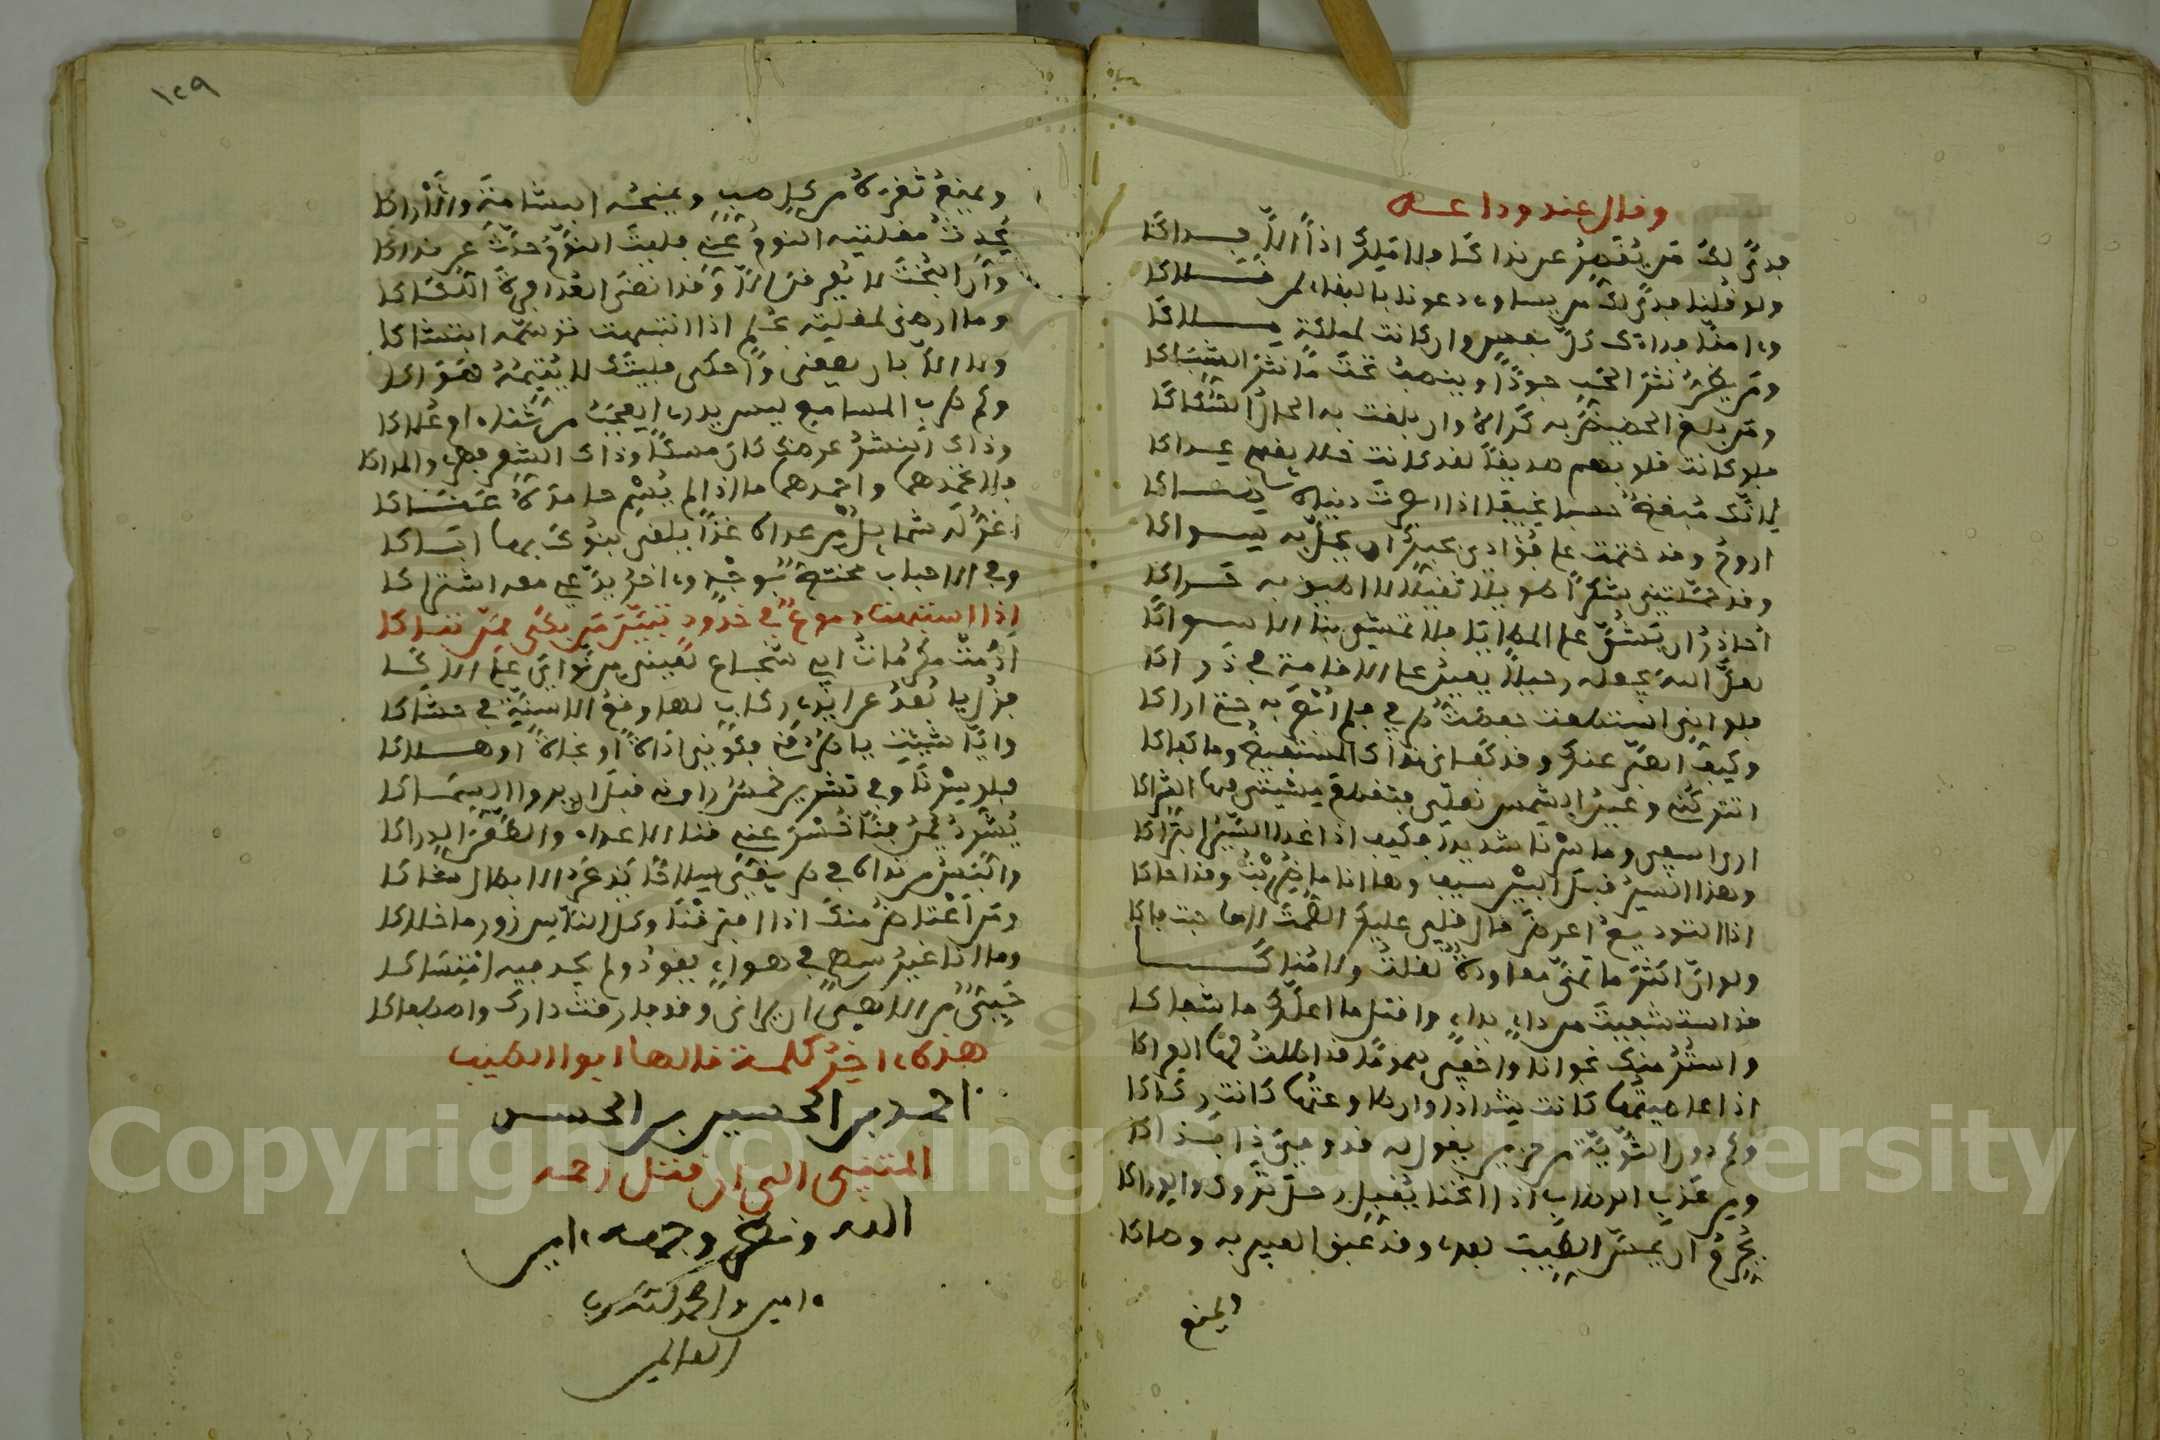 وقال عند وداعه
فدى لك من يقصر عن نداكا فلا ملك اذا الا فداكا
ولو قلنا فدى لك من يساوى دعونا بالبقاء لمن قلاكا
وءامنا فداءك كل نفس وان كانت لمملكة ملاكا
ومن يظن نثر الحب جودا وينصب تحت ما نثر الشباكا
ومن بلغ الحضيض به كراه وان بلغت به الحال السكاكا
فلو كانت قلوبهم صديقا لقد كانت خلائقهم عداكا
لانك مبغض حسبا نحيفا اذا ابصرت دنياه ضناكا
اروح وقد ختمت على فؤادي بحبك ان يحل به سواكا
وقد حملتني شكرا طويلا ثقيلا لا اطيق به حراكا
احاذر ان يشق على المطايا فلا تمشي بنا الا سواكا
لعل الله يجعله رحيلا يعين على الاقامة في ذراكا
فلو اني استطعت خفضت طرفي فلم انظر به حتى اراكا
وكيف الصبر عنك وقد كفاني نداك المستفيض وما كفاكا
اتتركني وعين الشمس نعلي فتقطع مشيتي فيها الشراكا
ارى اسفي وما سرنا شديدا فكيف اذا غدا السير ابتراكا
وهذا الشوق قبل البين سيف وها انا ما ضربت وقد احاكا
اذا التوديع اعرض قال قلبي عليك الصمت لا صاحبت فاكا
ولولا ان اكثر ما تمنى معاودة لقلت ولا مناكا
قد استشفيت من داء بداء واقتل ما اعلك ما شفاكا
واستر منك نجوانا واخفي هموما قد اطلت لها العراكا
اذا عاصيتها كانت شدادا وان طاوعتها كانت ركاكا
وكم دون الثوية من حزين يقول له قدومي ذا بذاكا
ومن عذب الرضاب اذا انخنا يقبل رحل تروك والوراكا
يحرم ان يمس الطيب بعدي وقد عبق العبير به وصاكا
ويمنع
١٢٩
ويمنع ثغره من كل صب ويمنحه البشامة والاراكا
يحدث مقلتيه النوم عني فليت النوم حدث عن نداكا
وان البخت لا يعرقن الا وقد انضى العذافرة اللكاكا
وما ارضى لمقلته بحلم اذا انتبهت توهمه ابتشاكا
ولا الا بان يصغي واحكي فليتك لا يتيمه هواكا
وكم طرب المسامع ليس يدري ايعجب من ثناءى ام علاكا
وذاك النشر عرضك كان مسكا وذاك الشعر فهرى والمداكا
فلا تحمدهما واحمد هماما اذا لم يسم حامده عناكا
اغر له شمائل من عداه غدا يلقى بنوك بها اباكا
وفي الاحباب مختص بوجد وءاخر يدعي معه اشتراكا
اذا اشتبهت دموع في خدود تبين من بكى ممن تباكا
اذمت مكرمات ابي شجاع لعيني من نواي على الاكا
فزل يا بعد عن ايدي ركاب لها وقع الاسنة في حشاكا
وايا شئت يا طرقي فكوني اذاة او نجاة او هلاكا
فلو سرنا وفي تشرين خمس راوني قبل ان يروا السماكا
يشرد يمن فنا خسر عني قنا الاعداء والطعن الدراكا
والبس من نداه في طريقي سلاحا يذعر الابطال شاكا
ومن اعتاض منك اذا افترقنا وكل الناس زور ما خلاكا
وما انا غير سهم في هواء يعود ولم يجد فيه امتساكا
حيي من الاهي ان يراني وقد فارقت دارك واصطفاكا
هذه ءاخر كلمة قالها ابو الطيب
احمد بن الحسين بن الحسن
المتنبي الى ان قتل رحمه
الله ونضر وجهه ءامين
ءامين والحمد لله رب
العالمين
Copyright © King Saud University